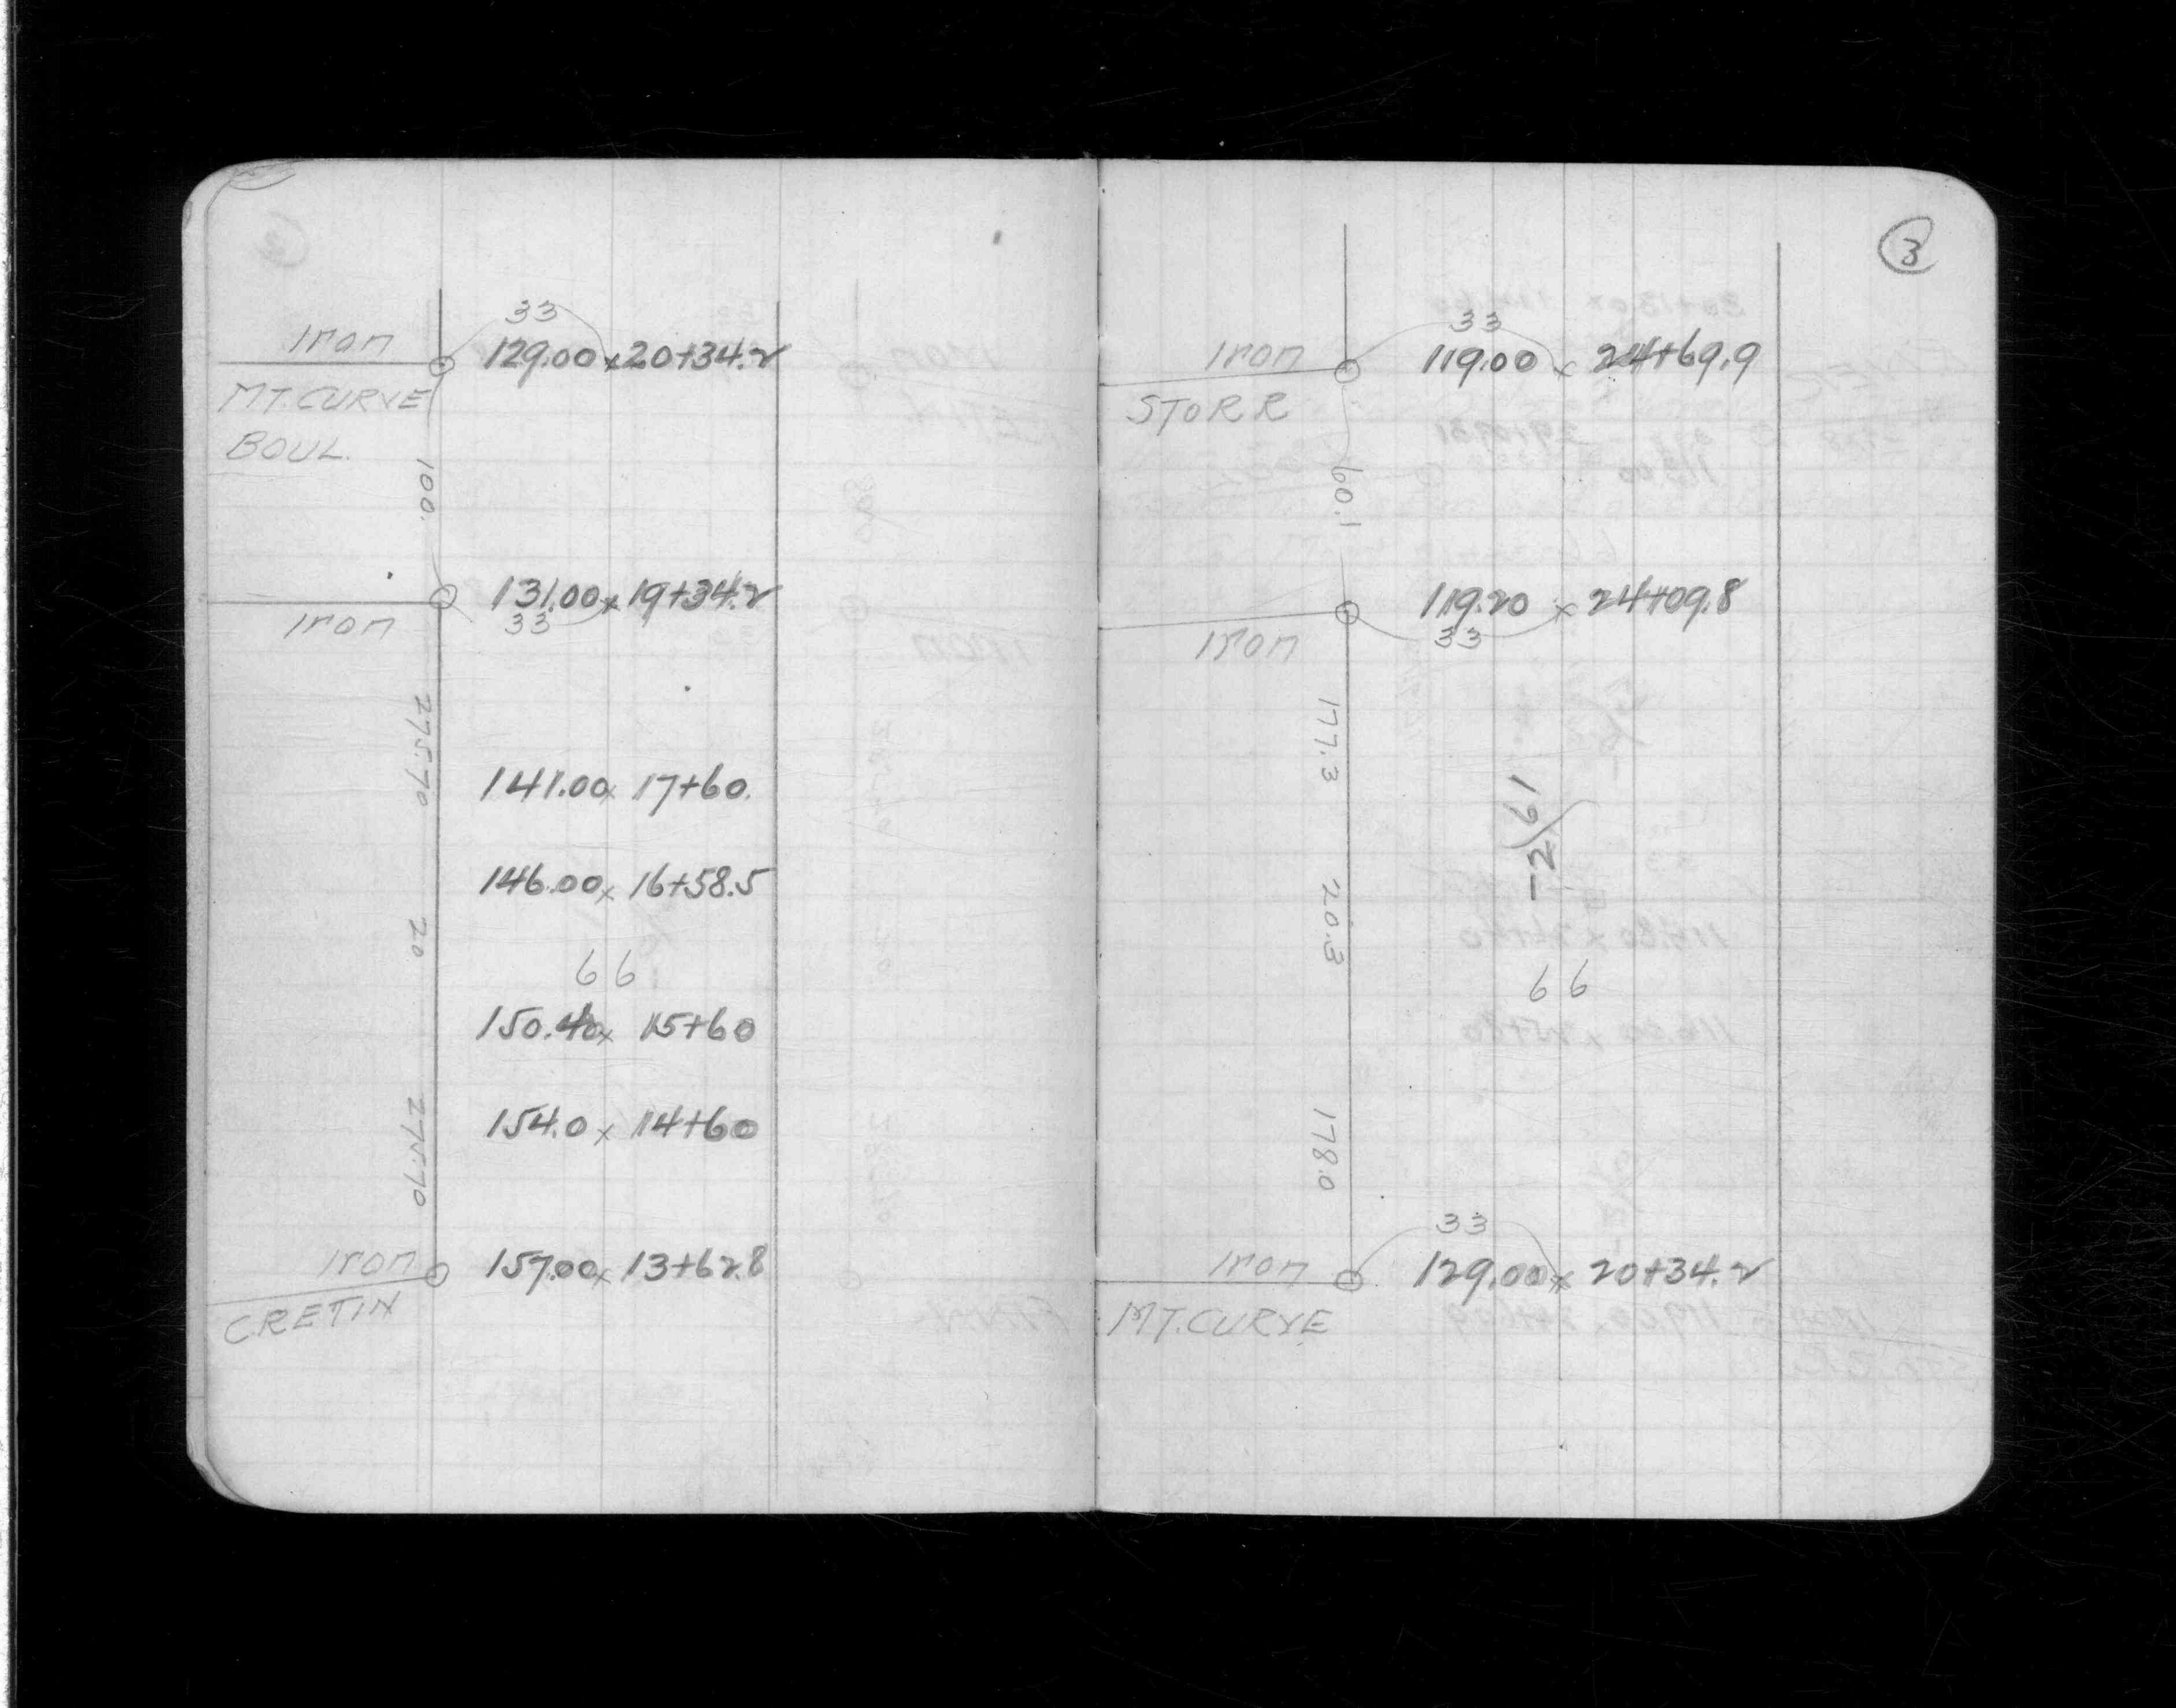 33
Iron 129.00 x 20+34.2
MT. CURVE
BOUL.
100.
131.00 x 19+34.2
Iron 33
275.70
141.00 x 17+60.
146.00 x 16+58.5
20
66
150.40 x 15+60
154.0 x 14+60
275.70
Iron 157.00 x 13+62.8
CRETIN
3
33
Iron 119.00 x 24+69.9
STORR
60.1
119.20 x 24+09.8
Iron 33
177.3
20.3
66
178.0
33
Iron 129.00 x 20+34.2
MT. CURVE